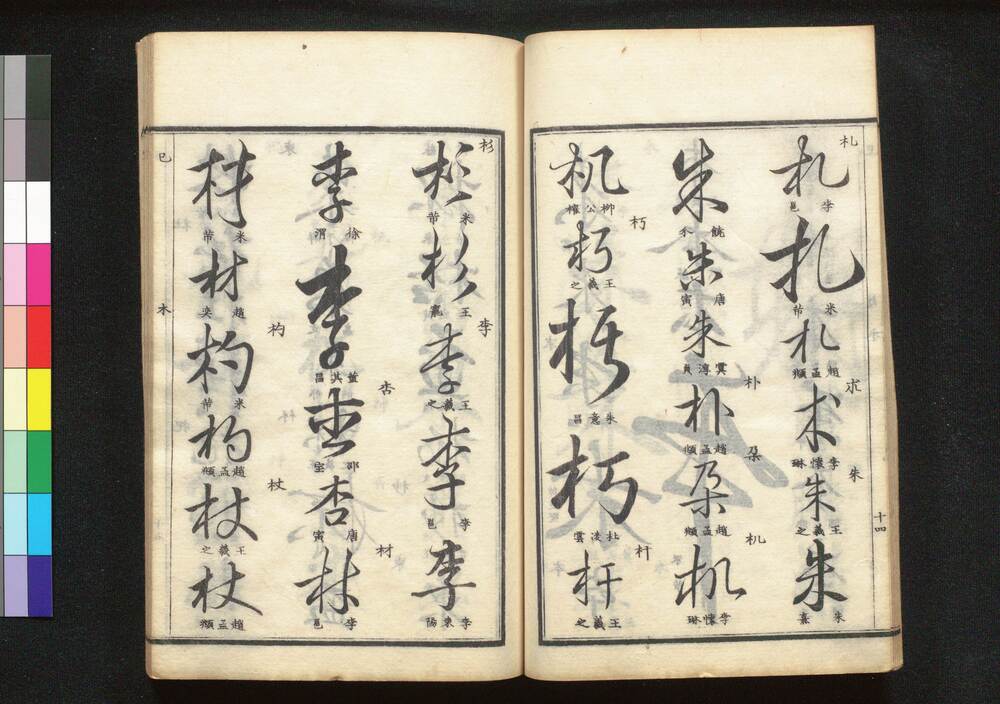 札
札
李邕
札
米芾
札
趙孟頫
朮
朮
李懷琳
朱
朱
王羲之
朱
朱熹
十四
朱
饒介
朱
唐寅
朱
朴
朴
趙孟頫
朶
朶
趙孟頫
机
机
李懷琳
机
柳公權
朽
朽
王羲之
朽
朱意昌
朽
杜凌雲
杆
杆
王羲之
杉
杉
米芾
杉
王寵
李
李
王羲之
李
李邕
李
李東陽
李
徐渭
李
董其昌
杏
杏
邵宝
杏
唐寅
材
材
李邕
材
米芾
材
趙奕
杓
杓
米芾
杓
趙孟頫
杖
杖
王羲之
杖
趙孟頫
巳
木